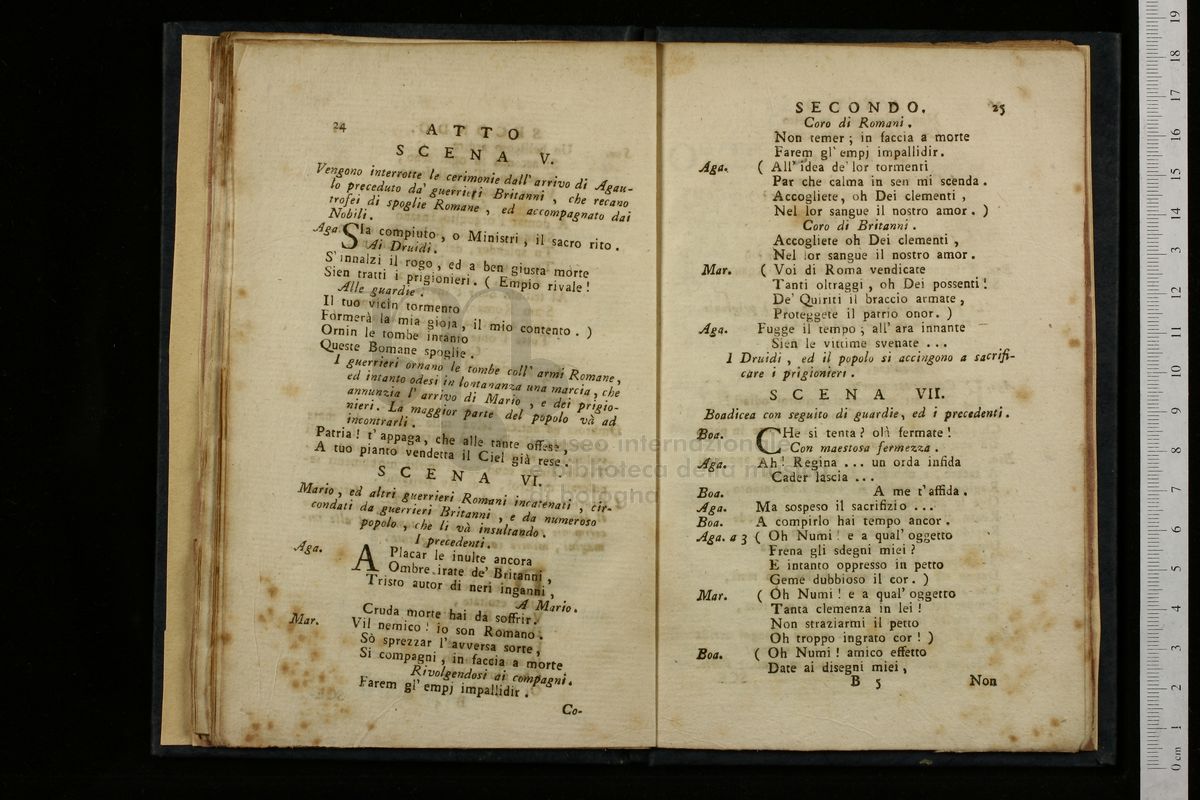 24
ATTO
SCENA V.
Vengono interrotte le cerimonie dall' arrivo di Agau-
lo preceduto da' guerrieri Britanni, che recano
trofei di spoglie Romane, ed accompagnato dai
Nobili.
Aga. SIa compiuto, o Ministri, il sacro rito.
Ai Druidi.
S'innalzi il rogo, ed a ben giusta morte
Sien tratti i prigionieri. (Empio rivale!
Alle guardie.
Il tuo vicin tormento
Formerà la mia gioja, il mio contento.)
Ornin le tombe intanto
Queste Bomane spoglie.
I guerrieri ornano le tombe coll' armi Romane,
ed intanto odesi in lontananza una marcia, che
annunzia l' arrivo di Mario, e dei prigio-
nieri. La maggior parte del popolo và ad
incontrarli.
Patria! t'appaga, che alle tante offese,
A tuo pianto vendetta il Ciel già rese.
SCENA VI.
Mario, ed altri guerrieri Romani incatenati, cir-
condati da guerrieri Britanni, e da numeroso
popolo, che li và insultando.
I precedenti.
Aga. APlacar le inulte ancora
Ombre irate de' Britanni,
Tristo autor di neri inganni,
A Mario.
Cruda morte hai da soffrir.
Mar. Vil nemico! io son Romano.
Sò sprezzar l'avversa sorte,
Si compagni, in faccia a morte
Rivolgendosi ai compagni.
Farem gl' empj impallidir.
Co-
SECONDO. 25
Coro di Romani.
Non temer; in faccia a morte
Farem gl' empj impallidir.
Aga. (All' idea de' lor tormenti
Par che calma in sen mi scenda.
Accogliete, oh Dei clementi,
Nel lor sangue il nostro amor.)
Coro di Britanni.
Accogliete oh Dei clementi,
Nel lor sangue il nostro amor.
Mar. (Voi di Roma vendicate
Tanti oltraggi, oh Dei possenti!
De' Quiriti il braccio armate,
Proteggete il patrio onor.)
Aga. Fugge il tempo; all' ara innante
Sien le vittime svenate ...
I Druidi, ed il popolo si accingono a sacrifi-
care i prigionieri.
SCENA VII.
Boadicea con seguito di guardie, ed i precedenti.
Boa. CHe si tenta? olà fermate!
Con maestosa fermezza.
Aga. Ah! Regina ... un orda infida
Cader lascia ...
Boa. A me t'affida.
Aga. Ma sospeso il sacrifizio ...
Boa. A compirlo hai tempo ancor.
Aga. a 3 (Oh Numi! e a qual' oggetto
Frena gli sdegni miei?
E intanto oppresso in petto
Geme dubbioso il cor.)
Mar. (Oh Numi! e a qual' oggetto
Tanta clemenza in lei!
Non straziarmi il petto
Oh troppo ingrato cor!)
Boa. (Oh Numi! amico effetto
Date ai disegni miei,
B 5 Non
museo internazionale
e biblioteca della musica
di bologna
0 cm 1 2 3 4 5 6 7 8 9 10 11 12 13 14 15 16 17 18 19